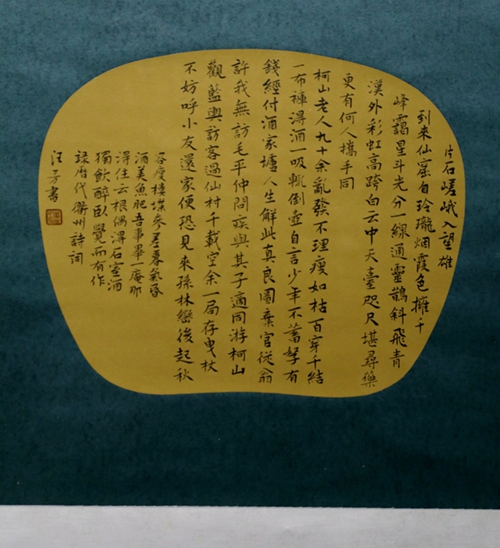 片石嵯峨入望雄
到来仙窟自玲瓏烟霞色擁千
峰靄星斗光分一線通靈鵲斜飛青
漢外彩虹高跨白云中天臺咫尺堪尋藥
更有何人攜手同
柯山老人九十余亂發不理瘦如枯百穿千結
一布褲得酒一吸輒倒壺自言少年不蓄孥有
錢經付酒家壚人生解此真良圖棄官從翁
許我無訪毛平仲問疾與其子適同游柯山
觀藍輿訪客過仙村千載空余一局存曳杖
不妨呼小友還家便恐見來孫林巒後起秋
容度樓堞參差暮氣昏
酒美魚肥吾事畢一庵那
得住云根偶得石室酒
獨飲醉臥覺而有作
錄歷代衢州詩詞
汪子書